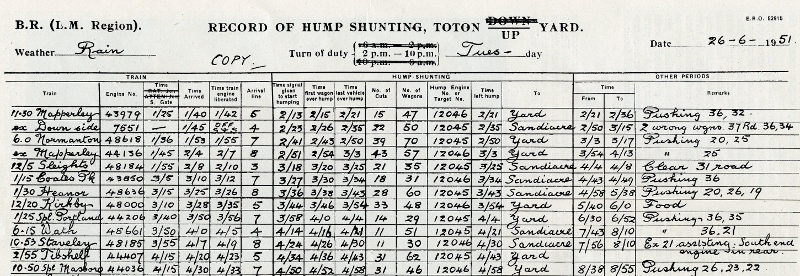 E.R.O. 52910
B.R. (L.M. Region).
RECORD OF HUMP SHUNTING, TOTON DOWN UP YARD.
Weather Rain
COPY
Turn of duty 6 a.m. — 2 p.m. 2 p.m. — 10 p.m. 10 p.m. — 6 a.m. Tues- day
Date 26-6-1951
TRAIN HUMP SHUNTING OTHER PERIODS
Train Engine No. Time S. Gate Time Arrived Time train engine liberated Arrival line Time signal given to start humping Time first wagon over hump Time last vehicle over hump No. of Cuts No. of Wagons Hump Engine No. or Target No. Time left hump To Time From To Remarks
11-30 Mapperley 43979 1/25 1/40 1/42 5 2/13 2/15 2/21 15 47 12046 2/21 Yard 2/21 2/36 Pushing 36, 32.
ex Down side 7551 — 1/45 4 2/23 2/26 2/35 22 50 12046 2/35 Sandiacre 2/50 3/15 2 wrong wgns. 37 Rd 36,34
6.0 Normanton 48618 1/36 1/53 1/55 7 2/41 2/43 2/50 39 70 12046 2/50 Yard 3/3 3/17 Pushing 20, 25
ex Mapperley 44136 1/45 2/4 2/7 8 2/51 2/54 3/3 43 57 12046 3/3 Yard 3/54 4/13 " 25
12/5 Sleights 48184 1/55 2/8 2/10 3 3/18 3/20 3/25 21 35 12046 3/25 Sandiacre 4/4 4/8 Clear 31 road
1/15 Coales Pk 43850 3/5 3/10 3/12 7 3/27 3/30 3/34 18 31 12046 3/34 Sandiacre 4/43 4/49 Pushing 36
1/30 Heanor 48636 3/15 3/25 3/26 8 3/36 3/38 3/43 28 60 12046 3/43 Sandiacre 4/58 5/38 Pushing 20, 26, 19
12/20 Kirkby 48000 3/10 3/28 3/35 5 3/44 3/46 3/54 33 48 12046 3/54 Yard 5/40 6/0 Food
1/25 Spl. Pontland 44206 3/40 3/50 3/56 7 3/58 4/0 4/4 14 29 12046 4/4 Yard 6/30 6/52 Pushing 36, 35
6-15 Wath 48661 3/50 4/0 4/5 4 4/14 4/16 4/21 11 51 12046 4/21 Sandiacre 7/43 8/10 " 36, 21
10-53 Staveley 48185 3/55 4/7 4/9 8 4/24 4/26 4/30 11 30 12046 4/30 Sandiacre 7/56 8/10 Ex 21 assisting. South end engine in rear
2/55 Tibshelf 44407 4/15 4/20 4/23 5 4/34 4/36 4/43 31 62 12046 4/43 Yard
10-50 Spl Masboro 44036 4/15 4/30 4/33 7 4/50 4/52 4/58 31 46 12046 4/58 Yard 8/38 8/55 Pushing 26, 23, 22